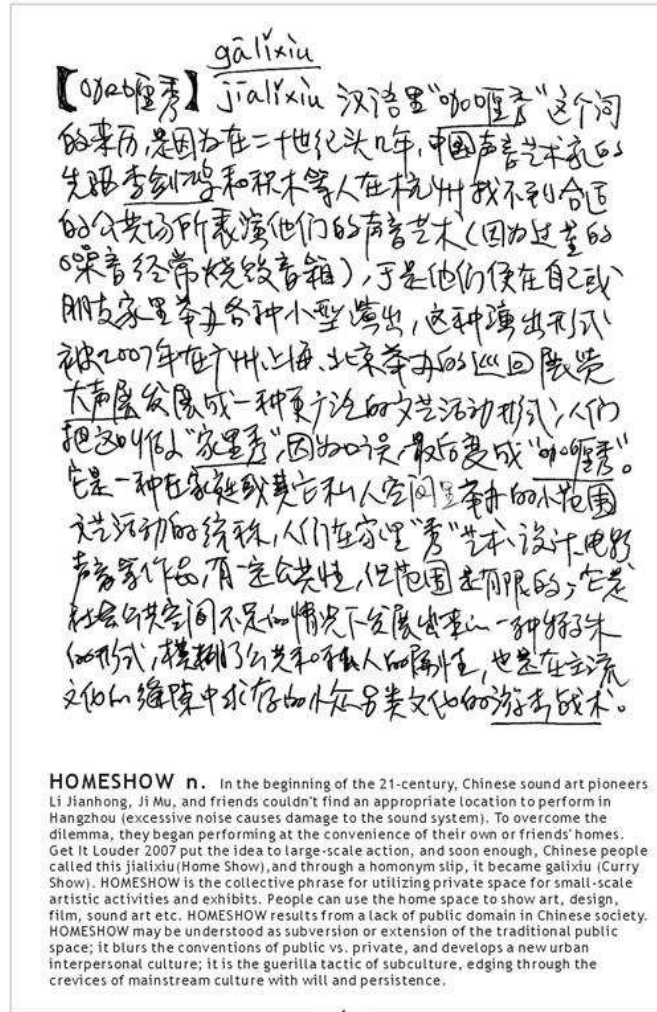 gālǐxiù
【咖喱秀】jiālǐxiù 汉语里“咖喱秀”这个词
的来历，是因为在二十世纪头几年，中国声音艺术家的
先驱李剑鸿和积木等人在杭州找不到合适
的公共场所表演他们的声音艺术（因为过量的
噪音经常烧毁音箱），于是他们便在自己或
朋友家里举办各种小型演出，这种演出形式
被2007年在广州、上海、北京举办的巡回展览
大声展发展成一种更广泛的文艺活动形式，人们
把这叫做“家里秀”，因为口误，最后变成“咖喱秀”。
它是一种在家庭或其它私人空间里举办的小范围
文艺活动的统称，人们在家里“秀”艺术、设计、电影
声音等作品，有一定公共性，但范围是有限的，它是
社会公共空间不足的情况下发展出来的一种特殊
的形式，模糊了公共和私人的属性，也是在主流
文化的缝隙中求存的小众另类文化的游击战术。
HOMESHOW n. In the beginning of the 21-century, Chinese sound art pioneers
Li Jianhong, Ji Mu, and friends couldn't find an appropriate location to perform in
Hangzhou (excessive noise causes damage to the sound system). To overcome the
dilemma, they began performing at the convenience of their own or friends' homes.
Get It Louder 2007 put the idea to large-scale action, and soon enough, Chinese people
called this jialixiu(Home Show),and through a homonym slip, it became galixiu (Curry
Show). HOMESHOW is the collective phrase for utilizing private space for small-scale
artistic activities and exhibits. People can use the home space to show art, design,
film, sound art etc. HOMESHOW results from a lack of public domain in Chinese society.
HOMESHOW may be understood as subversion or extension of the traditional public
space; it blurs the conventions of public vs. private, and develops a new urban
interpersonal culture; it is the guerilla tactic of subculture, edging through the
crevices of mainstream culture with will and persistence.